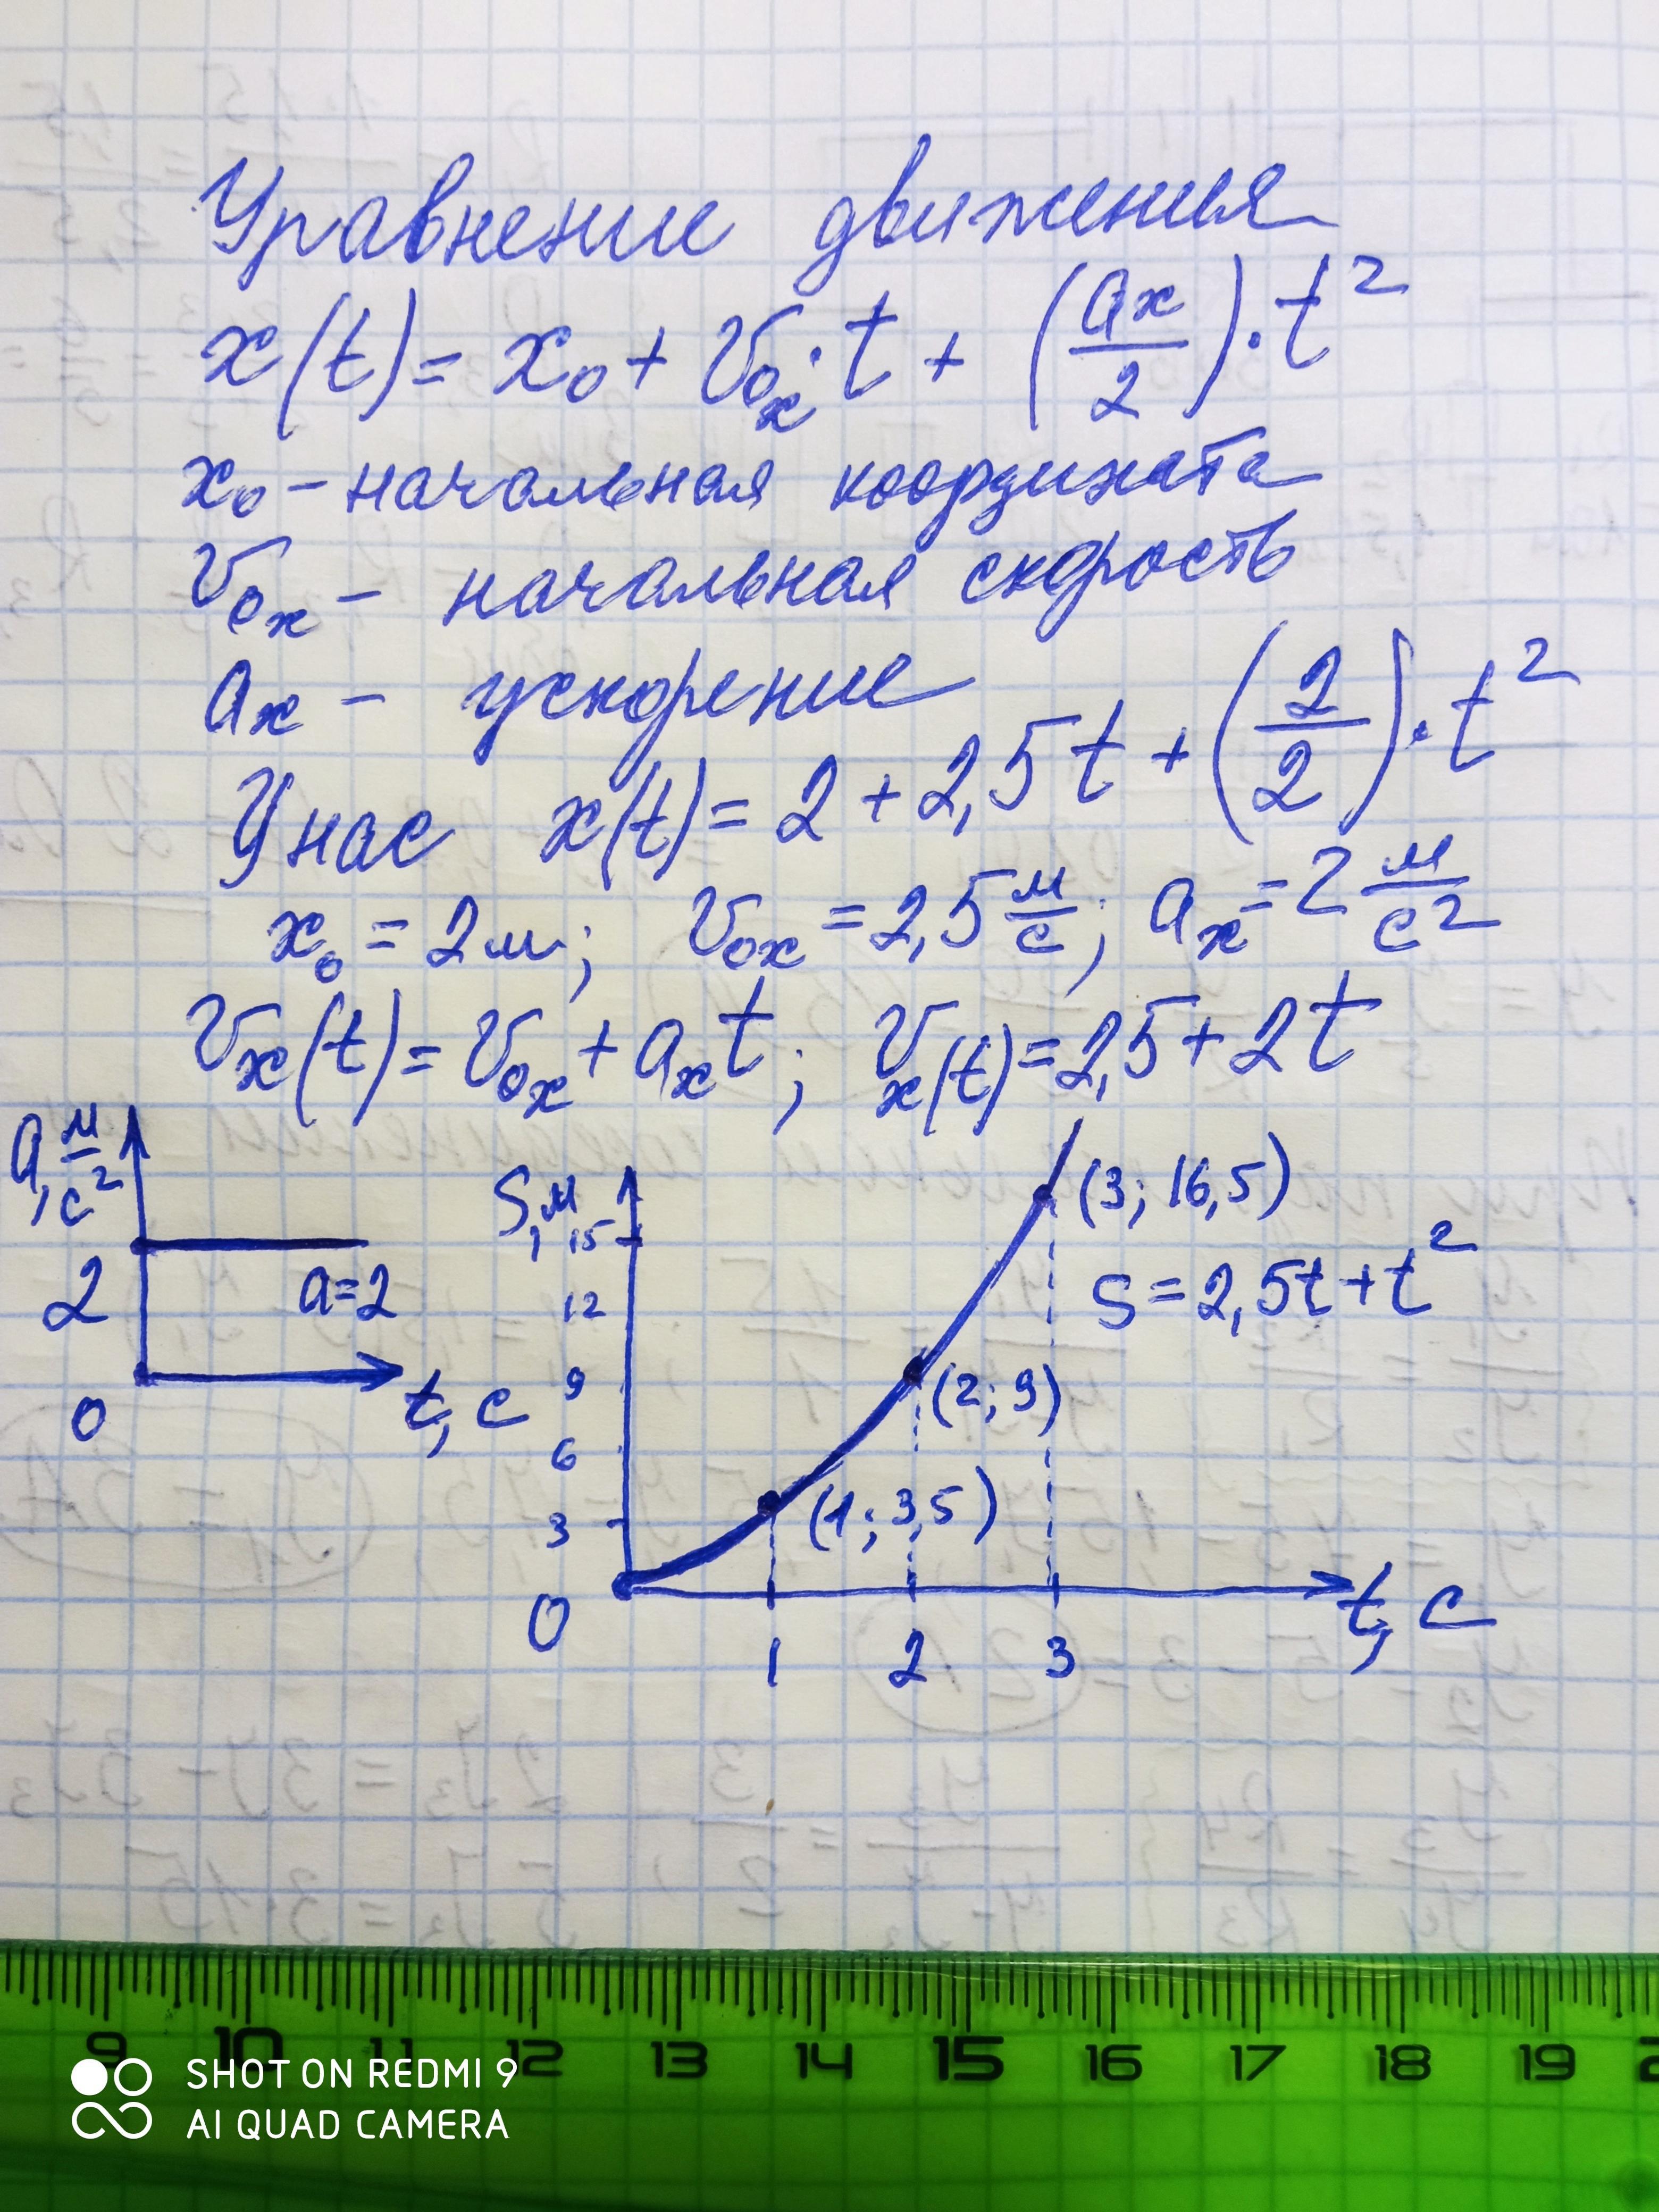 Уравнение движения
x(t) = x₀ + V₀ₓ·t + (aₓ/2)·t²
x₀ – начальная координата
V₀ₓ – начальная скорость
aₓ – ускорение
У нас x(t) = 2 + 2,5t + (2/2)·t²
x₀ = 2м; V₀ₓ = 2,5 м/с; aₓ = 2 м/с²
Vₓ(t) = V₀ₓ + aₓt; Vₓ(t) = 2,5 + 2t
a, м/с²
2
a=2
0
t, c
S, м
15
12
9
6
3
0
(3; 16,5)
S = 2,5t + t²
(2; 9)
(1; 3,5)
1 2 3
t, c
9 10 11 12 13 14 15 16 17 18 19 2
SHOT ON REDMI 9
AI QUAD CAMERA